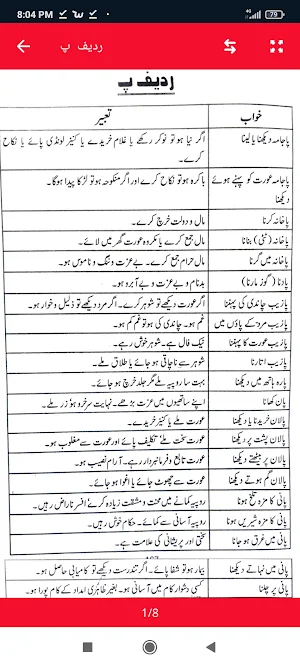 8:04 PM
79
ردیف پ
ردیف پ
خواب تعبیر
پاجامہ دیکھنا یا لینا اگر نیا ہو تو نوکر رکھے یا غلام خریدے یا کنیز لونڈی پائے یا نکاح
کرے۔
پاجامہ عورت کو پہنے ہوئے باکرہ ہو تو نکاح کرے اور اگر منکوحہ ہو تو لڑکا پیدا ہوگا۔
دیکھنا
پاخانہ کرنا مال و دولت خرچ کرے۔
پاخانہ (ٹٹی) بنانا مال جمع کرے یا مکروہ عورت گھر میں لائے۔
پاخانہ میں گرنا مال حرام جمع کرے۔ بے عزت و ننگ و ناموس ہو۔
پادنا (گوز مارنا) بدنام و بے عزت و بے آبرو ہو۔
پازیب چاندی کی پہننا اگر عورت دیکھے تو شوہر کرے۔ اگر مرد دیکھے تو ذلیل و خوار ہو۔
پازیب مرد کے پاؤں میں غم ہو۔ چاندی کی ہو تو غم کم ہو۔
پازیب عورت کا پہننا نیک فال ہے۔ شوہر خوش رہے۔
پازیب اتارنا شوہر سے ناچاقی ہو جائے یا طلاق ملے۔
پارہ ہاتھ میں دیکھنا بہت سا روپیہ ملے مگر جلد خرچ ہو جائے۔
پان کھانا اپنے ساتھیوں میں عزت بڑھے۔ نہایت سرخرو ہو زر ملے
پالان خریدنا یا دیکھنا عورت ملے یا کنیز خریدے۔
پالان پشت پر دیکھنا عورت سخت ملے تکلیف پائے اور عورت سے مغلوب ہو۔
پالان پر بیٹھے دیکھنا عورت تابع و فرمانبردار رہے۔ آرام نصیب ہو۔
پالان گم ہوتے دیکھنا عورت سے چھوٹ جائے یا اغوا ہو جائے۔
پانی کا مزہ تلخ ہونا روپیہ کمانے میں محنت و مشقت زیادہ کرنے افسر ناراض رہیں۔
پانی کا مزہ شیریں ہونا روپیہ آسانی سے کمائے۔ حکام خوش رہیں۔
پانی میں غرق ہو جانا سختی اور پریشانی کی علامت ہے۔
پانی میں نہاتے دیکھنا بیمار ہو تو شفا پائے۔ اگر تندرست دیکھے تو کامیابی حاصل ہو۔
پانی پر چلنا کسی دشوار کام میں آسانی ہو۔ بغیر ظاہری امداد کے کام پورا ہو۔
1/8